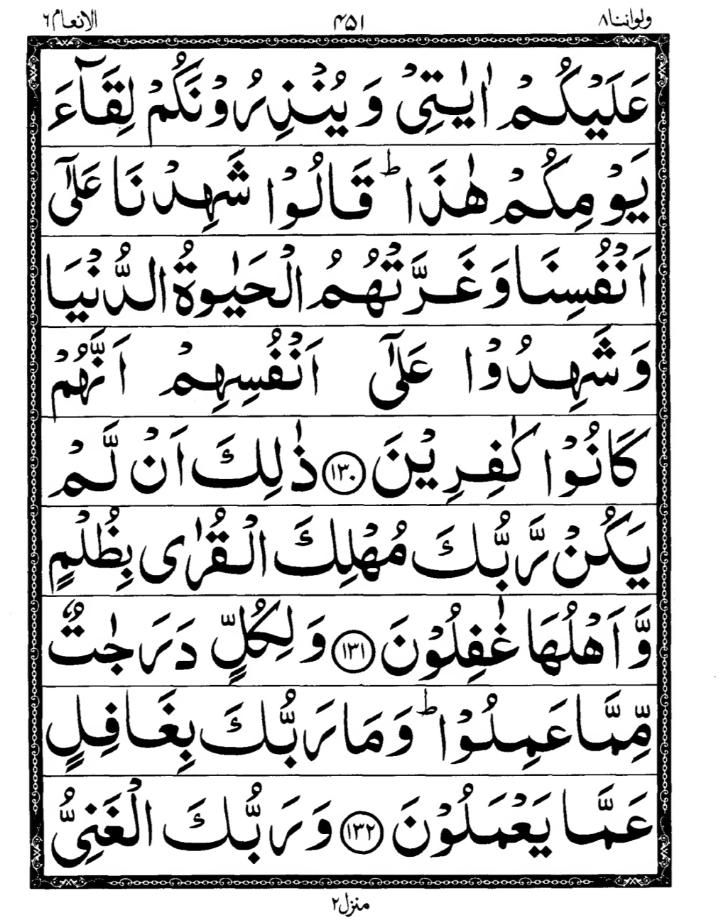 ولواننا۸ ۴۵۱ الانعام۶
عَلَيْكُمْ اٰيٰتِىْ وَ يُنْذِرُوْنَكُمْ لِقَآءَ
يَوْمِكُمْ هٰذَا ؕ قَالُوْا شَهِدْنَا عَلٰٓى
اَنْفُسِنَا وَغَرَّتْهُمُ الْحَيٰوةُ الدُّنْيَا
وَشَهِدُوْا عَلٰٓى اَنْفُسِهِمْ اَنَّهُمْ
كَانُوْا كٰفِرِيْنَ ﴿۱۳۰﴾ ذٰلِكَ اَنْ لَّمْ
يَكُنْ رَّبُّكَ مُهْلِكَ الْقُرٰى بِظُلْمٍ
وَّاَهْلُهَا غٰفِلُوْنَ ﴿۱۳۱﴾ وَلِكُلٍّ دَرَجٰتٌ
مِّمَّا عَمِلُوْا ؕ وَمَا رَبُّكَ بِغَافِلٍ
عَمَّا يَعْمَلُوْنَ ﴿۱۳۲﴾ وَرَبُّكَ الْغَنِىُّ
منزل۲